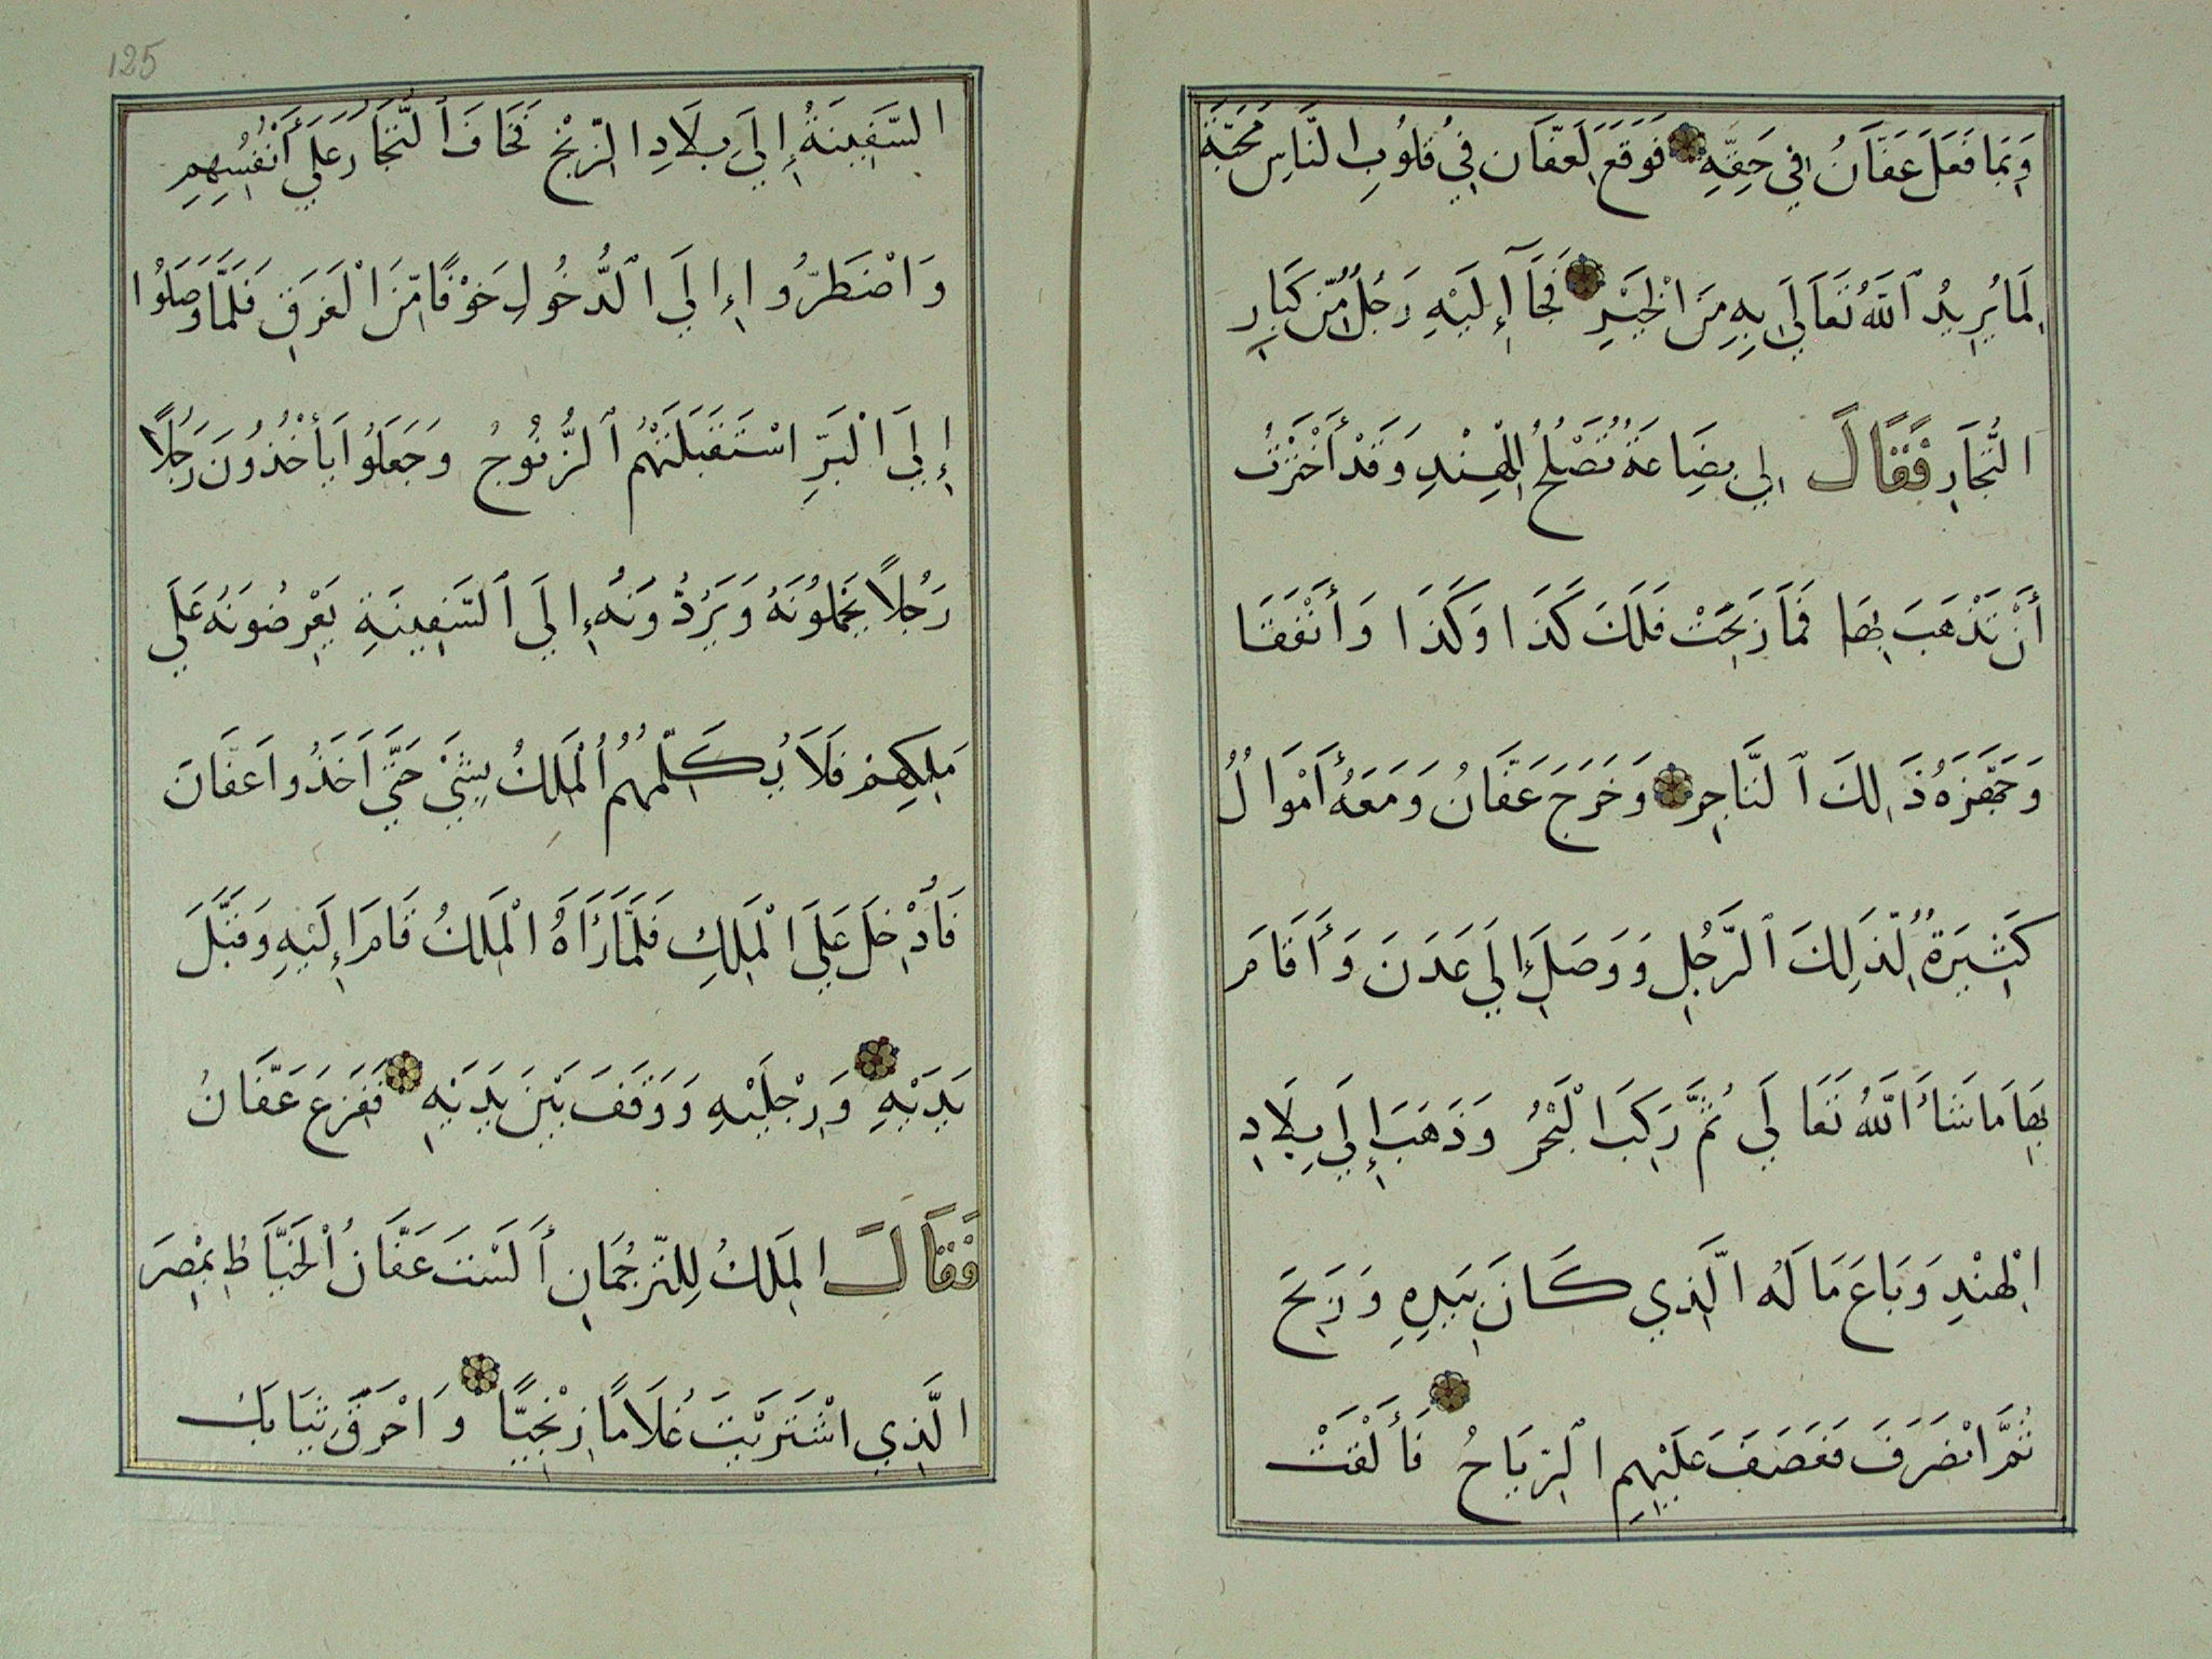 وَبِمَا فَعَلَ عَفَّانُ فِي حَقِّهِ فَوَقَعَ لِعَفَّانَ فِي قُلُوبِ النَّاسِ مَحَبَّةٌ
لِمَا يُرِيدُ ٱللَّهُ تَعَالَى بِهِ مِنَ الْخَيْرِ فَجَآءَ إِلَيْهِ رَجُلٌ مِّن كِبَارِ
التُّجَّارِ فَقَالَ لِي بِضَاعَةٌ تَصْلُحُ لِلْهِنْدِ وَقَدْ أَخْتَرْتُ
أَنْ تَذْهَبَ بِهَا فَمَا رَبِحَتْ فَلَكَ كَذَا وَكَذَا وَأَنْفَقَا
وَجَهَّزَهُ ذَلِكَ ٱلتَّاجِرُ وَخَرَجَ عَفَّانُ وَمَعَهُ أَمْوَالٌ
كَثِيرَةٌ لِّذَلِكَ ٱلرَّجُلِ وَوَصَلَ إِلَى عَدَنَ وَأَقَامَ
بِهَا مَا شَاءَ اللَّهُ تَعَالَى ثُمَّ رَكِبَ الْبَحْرُ وَذَهَبَ إِلَى بِلَادِ
الْهِنْدِ وَبَاعَ مَا لَهُ الَّذِي كَانَ بِيَدِهِ وَرَبِحَ
ثُمَّ انْصَرَفَ فَعَصَفَ عَلَيْهِمِ ٱلرِّيَاحُ فَأَلْقَتْ
125
السَّفِينَةُ إِلَى بِلَادِ الزِّنْجِ فَخَافَ ٱلتُّجَّارُ عَلَى أَنْفُسِهِمِ
وَاضْطَرُّوا إِلَى ٱلدُّخُولِ خَوْفًا مِّنَ الْغَرَقِ فَلَمَّا وَصَلُوا
إِلَى الْبَرِّ اسْتَقْبَلَتْهُمُ ٱلزُّنُوجُ وَجَعَلُوا يَأْخُذُونَ رَجُلًا
رَجُلًا يَحْمِلُونَهُ وَيَرُدُّونَهُ إِلَى ٱلسَّفِينَةِ يَعْرِضُونَهُ عَلَى
مَلِكِهِمْ فَلَا يُكَلِّمُهُمُ ٱلْمَلِكُ بِشَيْءٍ حَتَّى أَخَذُوا عَفَّانَ
فَأُدْخِلَ عَلَى الْمَلِكِ فَلَمَّا رَآهُ الْمَلِكُ قَامَ إِلَيْهِ وَقَبَّلَ
يَدَيْهِ وَرِجْلَيْهِ وَوَقَفَ بَيْنَ يَدَيْهِ فَفَزِعَ عَفَّانُ
فَقَالَ الْمَلِكُ لِلتَّرْجُمَانِ أَلَسْتَ عَفَّانُ ٱلْخَيَّاطُ بِمِصْرَ
الَّذِي اشْتَرَيْتَ غُلَامًا زِنْجِيًّا وَاحْرَقَ ثِيَابَكَ